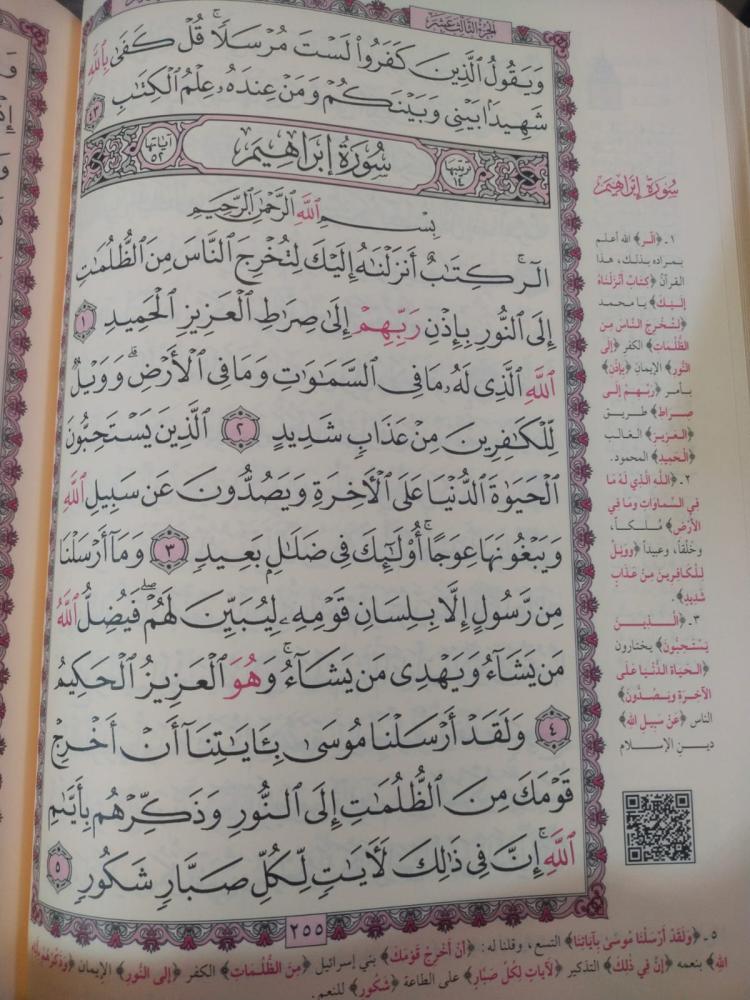 الجزء الثالث عشر
وَيَقُولُ ٱلَّذِينَ كَفَرُواْ لَسۡتَ مُرۡسَلٗاۚ قُلۡ كَفَىٰ بِٱللَّهِ
شَهِيدَۢا بَيۡنِي وَبَيۡنَكُمۡ وَمَنۡ عِندَهُۥ عِلۡمُ ٱلۡكِتَٰبِ ٤٣
ترتيبها ١٤ سُورَةُ إِبْرَاهِيمَ آياتها ٥٢
بِسۡمِ ٱللَّهِ ٱلرَّحۡمَٰنِ ٱلرَّحِيمِ
الٓرۚ كِتَٰبٌ أَنزَلۡنَٰهُ إِلَيۡكَ لِتُخۡرِجَ ٱلنَّاسَ مِنَ ٱلظُّلُمَٰتِ
إِلَى ٱلنُّورِ بِإِذۡنِ رَبِّهِمۡ إِلَىٰ صِرَٰطِ ٱلۡعَزِيزِ ٱلۡحَمِيدِ ١
ٱللَّهِ ٱلَّذِي لَهُۥ مَا فِي ٱلسَّمَٰوَٰتِ وَمَا فِي ٱلۡأَرۡضِۗ وَوَيۡلٞ
لِّلۡكَٰفِرِينَ مِنۡ عَذَابٖ شَدِيدٍ ٢ ٱلَّذِينَ يَسۡتَحِبُّونَ
ٱلۡحَيَوٰةَ ٱلدُّنۡيَا عَلَى ٱلۡأٓخِرَةِ وَيَصُدُّونَ عَن سَبِيلِ ٱللَّهِ
وَيَبۡغُونَهَا عِوَجًاۚ أُوْلَٰٓئِكَ فِي ضَلَٰلِۭ بَعِيدٖ ٣ وَمَآ أَرۡسَلۡنَا
مِن رَّسُولٍ إِلَّا بِلِسَانِ قَوۡمِهِۦ لِيُبَيِّنَ لَهُمۡۖ فَيُضِلُّ ٱللَّهُ
مَن يَشَآءُ وَيَهۡدِي مَن يَشَآءُۚ وَهُوَ ٱلۡعَزِيزُ ٱلۡحَكِيمُ
٤ وَلَقَدۡ أَرۡسَلۡنَا مُوسَىٰ بِـَٔايَٰتِنَآ أَنۡ أَخۡرِجۡ
قَوۡمَكَ مِنَ ٱلظُّلُمَٰتِ إِلَى ٱلنُّورِ وَذَكِّرۡهُم بِأَيَّىٰمِ
ٱللَّهِۚ إِنَّ فِي ذَٰلِكَ لَأٓيَٰتٖ لِّكُلِّ صَبَّارٖ شَكُورٖ ٥
٢٥٥
سُورَةُ إِبْرَاهِيمَ
١ـ ﴿الٓر﴾ الله أعلم
بمراده بذلك، هذا
القرآن ﴿كِتَابٌ أَنْزَلْنَاهُ
إِلَيْكَ﴾ يا محمد
﴿لِتُخْرِجَ النَّاسَ مِنَ
الظُّلُمَاتِ﴾ الكفر ﴿إِلَى
النُّورِ﴾ الإيمان ﴿بِإِذْنِ﴾
بأمر ﴿رَبِّهِمْ إِلَى
صِرَاطِ﴾ طريق
﴿الْعَزِيزِ﴾ الغالب
﴿الْحَمِيدِ﴾ المحمود.
٢ـ ﴿اللَّهِ الَّذِي لَهُ مَا
فِي السَّمَاوَاتِ وَمَا فِي
الْأَرْضِ﴾ مُلكاً،
وخلقاً، وعبيداً ﴿وَوَيْلٌ
لِلْكَافِرِينَ مِنْ عَذَابٍ
شَدِيدٍ﴾.
٣ـ ﴿الَّذِينَ
يَسْتَحِبُّونَ﴾ يختارون
﴿الْحَيَاةَ الدُّنْيَا عَلَى
الْآخِرَةِ وَيَصُدُّونَ﴾
الناس ﴿عَنْ سَبِيلِ اللهِ﴾
دين الإسلام
٥ـ ﴿وَلَقَدْ أَرْسَلْنَا مُوسَىٰ بِآيَاتِنَا﴾ التسع، وقلنا له: ﴿أَنْ أَخْرِجْ قَوْمَكَ﴾ بني إسرائيل ﴿مِنَ الظُّلُمَاتِ﴾ الكفر ﴿إِلَى النُّورِ﴾ الإيمان ﴿وَذَكِّرْهُمْ بِأَيَّامِ
اللهِ﴾ بنعمه ﴿إِنَّ فِي ذَلِكَ﴾ التذكير ﴿لَآيَاتٍ لِكُلِّ صَبَّارٍ﴾ على الطاعة ﴿شَكُورٍ﴾ للنعم.